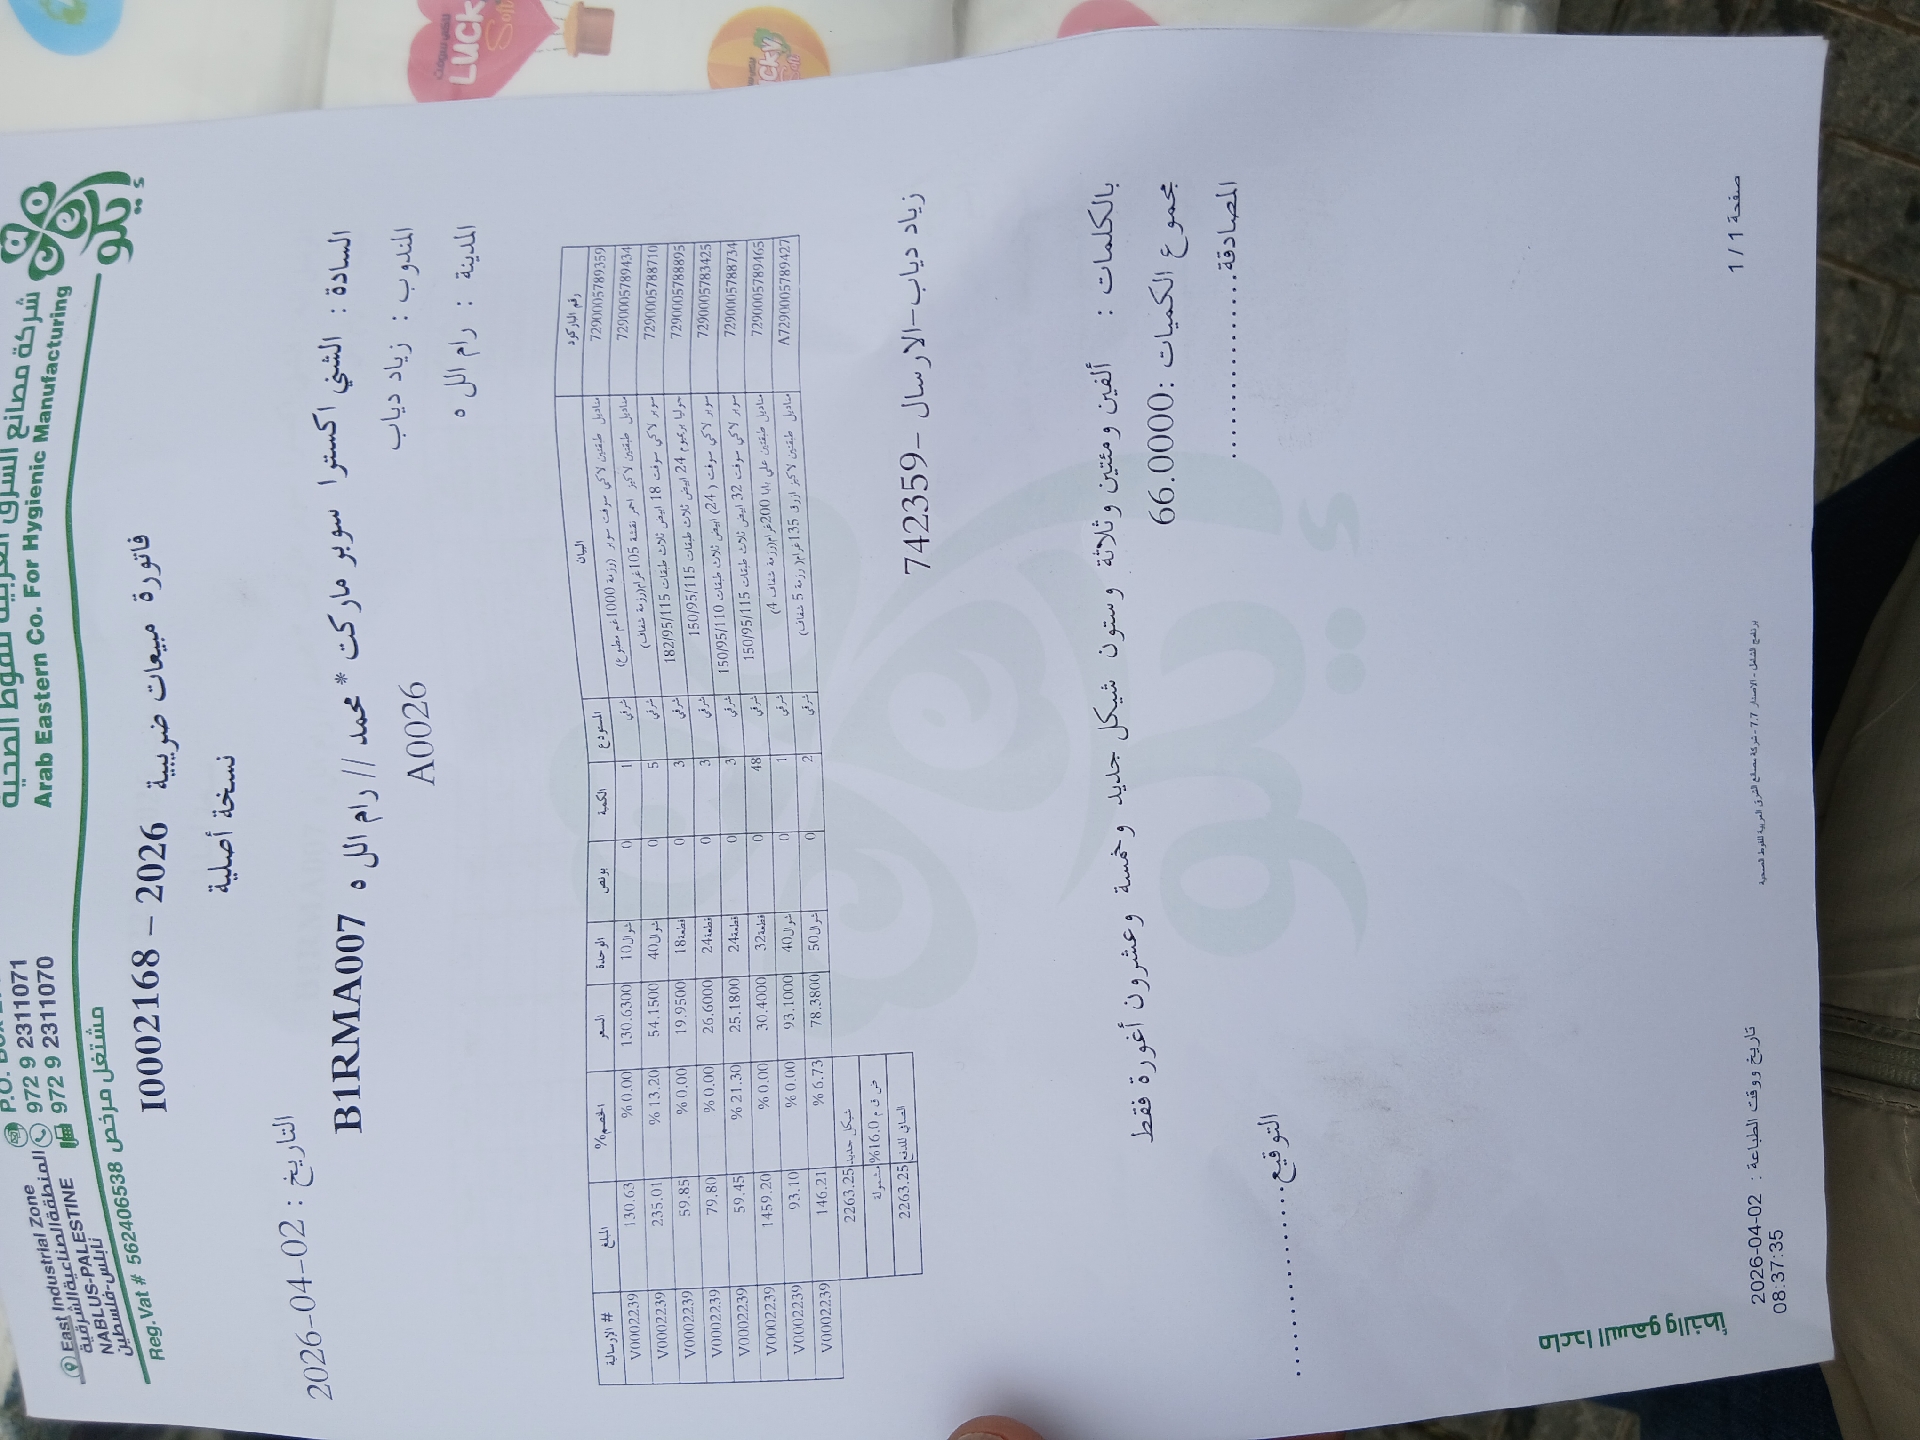 شركة مصانع الشرق العربية للفوط الصحية
Arab Eastern Co. For Hygienic Manufacturing
إيكو
972 9 2311071
972 9 2311070
East Industrial Zone
المنطقة الصناعية الشرقية
NABLUS-PALESTINE
نابلس-فلسطين
Reg.Vat # 562406538 مشتغل مرخص
فاتورة مبيعات ضريبية I0002168 – 2026
نسخة أصلية
التاريخ : 2026-04-02
السادة : الشني اكسترا سوبر ماركت * محمد // رام الل ه B1RMA007
المندوب : زياد دياب A0026
المدينة : رام الل ه
رقم الباركود | البيان | المستودع | الكمية | بونص | الوحدة | السعر | الخصم% | المبلغ | # الارسالية
7290005789359 | مناديل طبقتين لاكي سوفت سوبر (رزمة 1000غم مطبوع) | شرقي | 1 | 0 | شوال10 | 130.6300 | % 0.00 | 130.63 | V0002239
7290005789434 | مناديل طبقتين لاكيز احمر نقشة 105غرام(رزمة شفاف) | شرقي | 5 | 0 | شوال40 | 54.1500 | % 13.20 | 235.01 | V0002239
7290005788710 | سوبر لاكي سوفت 18 ابيض ثلاث طبقات 182/95/115 | شرقي | 3 | 0 | قطعة18 | 19.9500 | % 0.00 | 59.85 | V0002239
7290005788895 | جوليا بريميوم 24 ابيض ثلاث طبقات 150/95/115 | شرقي | 3 | 0 | قطعة24 | 26.6000 | % 0.00 | 79.80 | V0002239
7290005783425 | سوبر لاكي سوفت (24) ابيض ثلاث طبقات 150/95/110 | شرقي | 3 | 0 | قطعة24 | 25.1800 | % 21.30 | 59.45 | V0002239
7290005788734 | سوبر لاكي سوفت 32 ابيض ثلاث طبقات 150/95/115 | شرقي | 48 | 0 | قطعة32 | 30.4000 | % 0.00 | 1459.20 | V0002239
7290005789465 | مناديل طبقتين علي بابا 200غرام(رزمة شفاف 4) | شرقي | 1 | 0 | شوال40 | 93.1000 | % 0.00 | 93.10 | V0002239
A7290005789427 | مناديل طبقتين لاكيز ازرق 135غرام( رزمة 5 شفاف) | شرقي | 2 | 0 | شوال50 | 78.3800 | % 6.73 | 146.21 | V0002239
شيكل جديد 2263.25
ض ق م 16.0% مشمولة
الصافي للدفع 2263.25
زياد دياب-الارسال -742359
بالكلمات : ألفين ومئتين وثلاثة وستون شيكل جديد وخمسة وعشرون أغورة فقط
مجموع الكميات :66.0000
المصادقة
التوقيع
ماعدا السهو والخطأ
برنامج الشامل - الاصدار 7.7 - شركة مصانع الشرق العربية للفوط الصحية
تاريخ ووقت الطباعة : 2026-04-02
08:37:35
صفحة 1 / 1
LUCKY
Soft